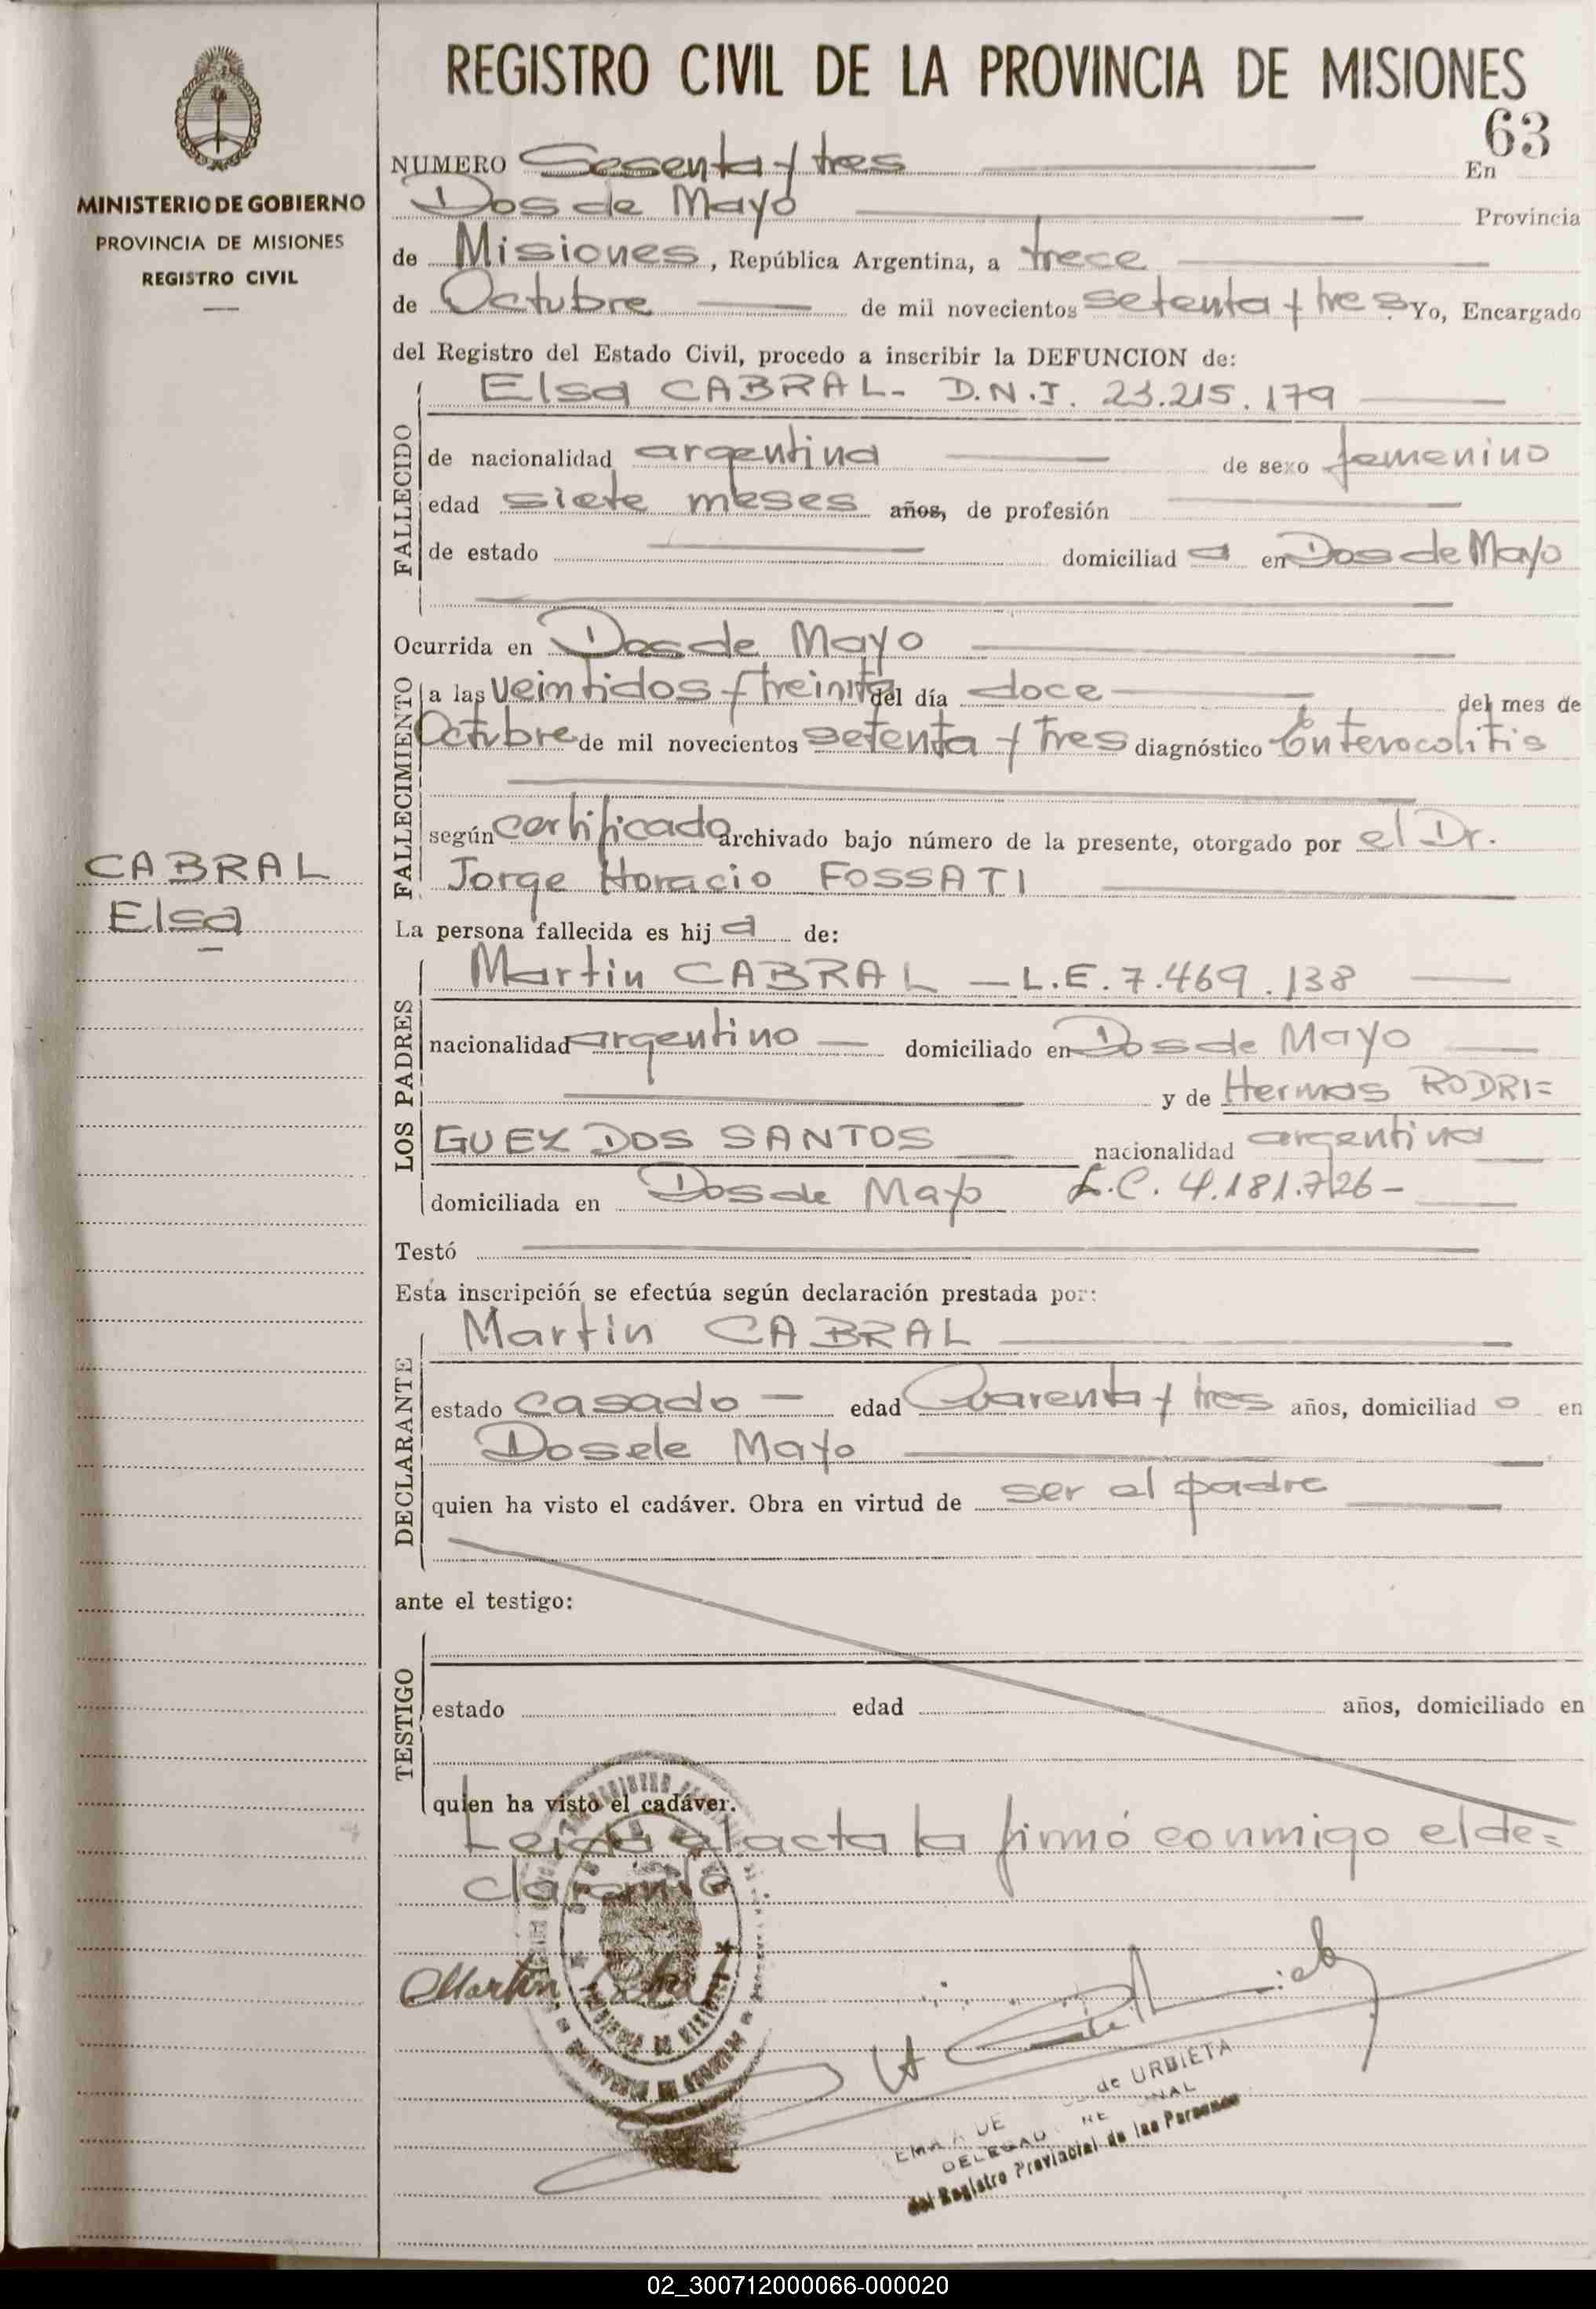 REGISTRO CIVIL DE LA PROVINCIA DE MISIONES
63
MINISTERIO DE GOBIERNO
PROVINCIA DE MISIONES
REGISTRO CIVIL
CABRAL
Elsa
NUMERO Sesenta y tres En
Dos de Mayo Provincia
de Misiones, República Argentina, a trece
de Octubre de mil novecientos setenta y tres Yo, Encargado
del Registro del Estado Civil, procedo a inscribir la DEFUNCION de:
FALLECIDO
Elsa CABRAL- D.N.I. 23.215.179
de nacionalidad argentina de sexo femenino
edad siete meses años, de profesión
de estado domiciliad a en Dos de Mayo
Ocurrida en Dos de Mayo
FALLECIMIENTO
a las veintidos y treinta del día doce del mes de
Octubre de mil novecientos setenta y tres diagnóstico Enterocolitis
según certificado archivado bajo número de la presente, otorgado por el Dr.
Jorge Horacio FOSSATI
La persona fallecida es hij a de:
LOS PADRES
Martin CABRAL - L.E. 7.469.138
nacionalidad argentino domiciliado en Dos de Mayo
y de Hermas RODRI=
GUEZ DOS SANTOS nacionalidad argentina
domiciliada en Dos de Mayo L.C. 4.181.726-
Testó
Esta inscripción se efectúa según declaración prestada por:
DECLARANTE
Martin CABRAL
estado casado - edad Cuarenta y tres años, domiciliad o en
Dos de Mayo
quien ha visto el cadáver. Obra en virtud de ser el padre
ante el testigo:
TESTIGO
estado edad años, domiciliado en
quien ha visto el cadáver.
Leida el acta la firmó conmigo el de=
clarante.
Martin Cabral
de URBIETA
del Registro Provincial de las Personas
02_300712000066-000020